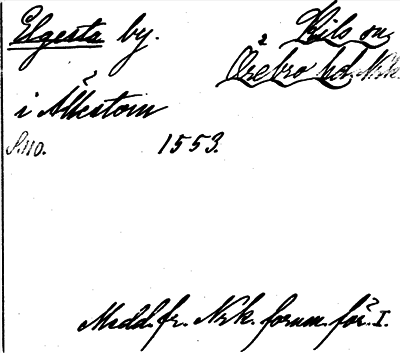 Elgesta by. Kils sn,
Örebro hd. Nrk.
i Älkestom
S. 110. 1553.
Medd. fr. Nrk. fornm. för. I.